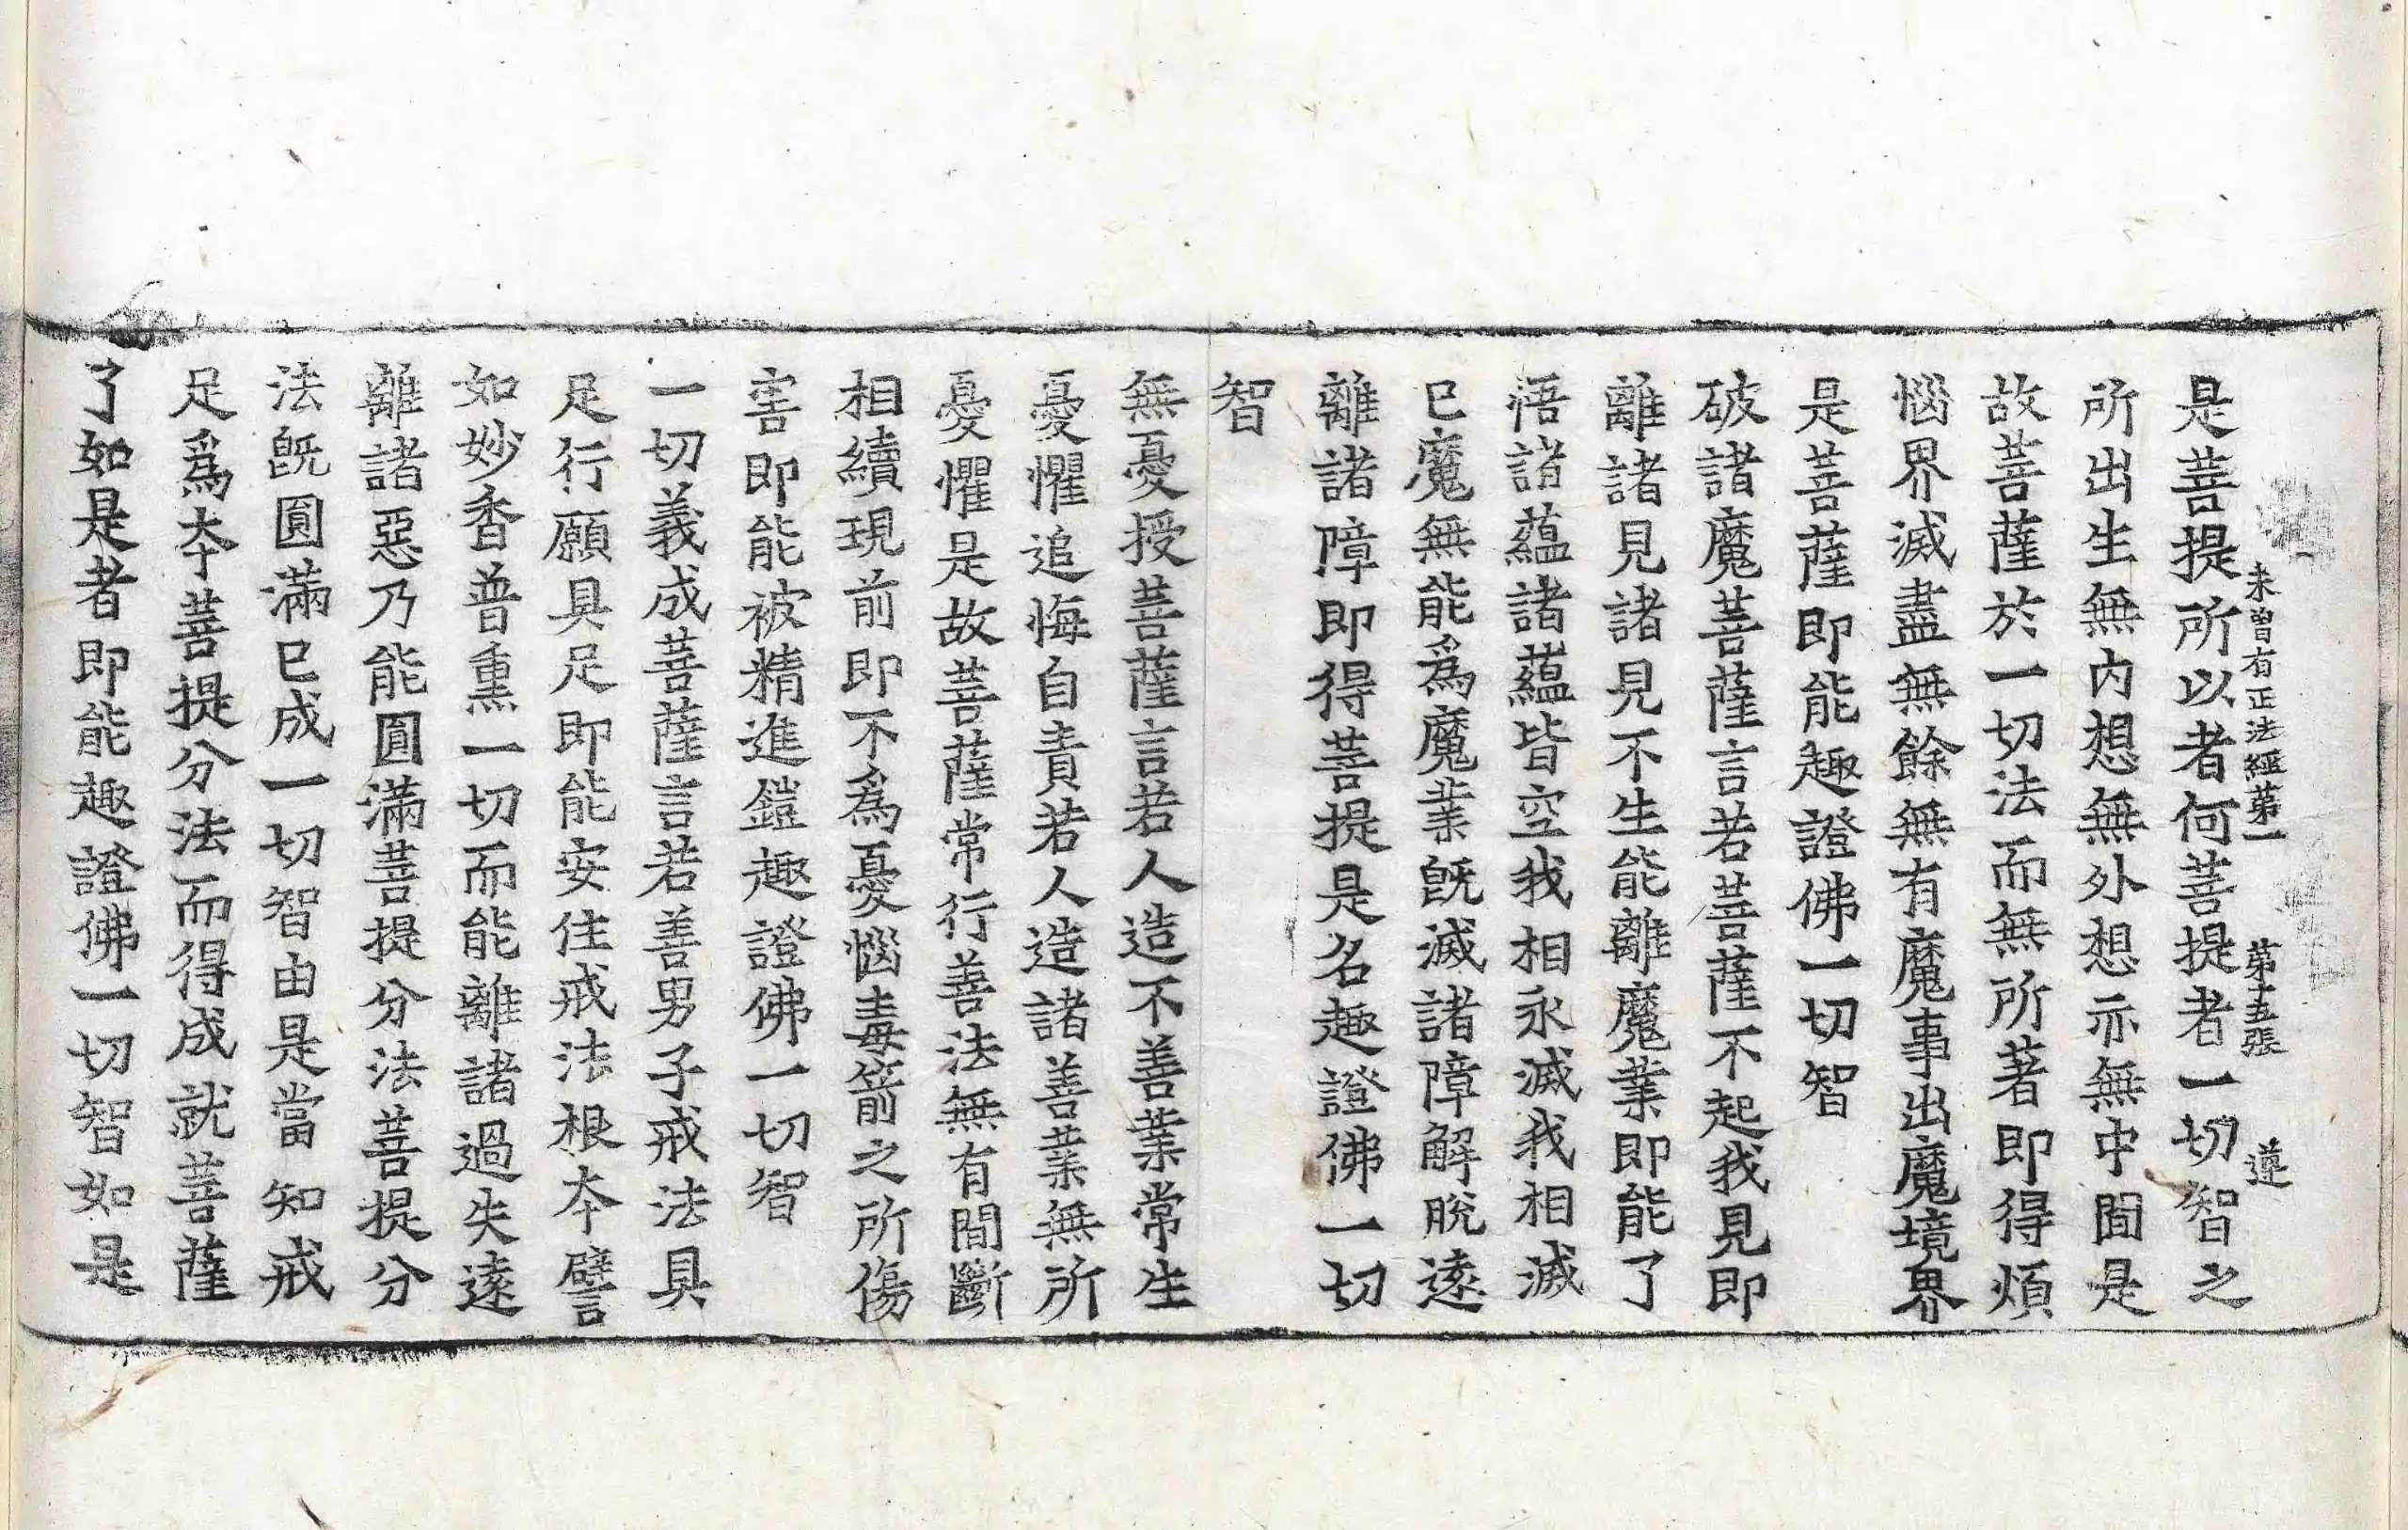 未曾有正法經第一　第十五張　遵
是菩提所以者何菩提者一切智之
所出生無内想無外想亦無中間是
故菩薩於一切法而無所著即得煩
惱界滅盡無餘無有魔事出魔境界
是菩薩即能趣證佛一切智
破諸魔菩薩言若菩薩不起我見即
離諸見諸見不生能離魔業即能了
悟諸蘊諸蘊皆空我相永滅我相滅
已魔無能爲魔業旣滅諸障解脫遠
離諸障即得菩提是名趣證佛一切
智
無憂授菩薩言若人造不善業常生
憂懼追悔自責若人造諸善業無所
憂懼是故菩薩常行善法無有間斷
相續現前即不爲憂惱毒箭之所傷
害即能被精進鎧趣證佛一切智
一切義成菩薩言若善男子戒法具
足行願具足即能安住戒法根本譬
如妙香普熏一切而能離諸過失遠
離諸惡乃能圓滿菩提分法菩提分
法旣圓滿已成一切智由是當知戒
足爲本菩提分法而得成就菩薩
了如是者即能趣證佛一切智如是